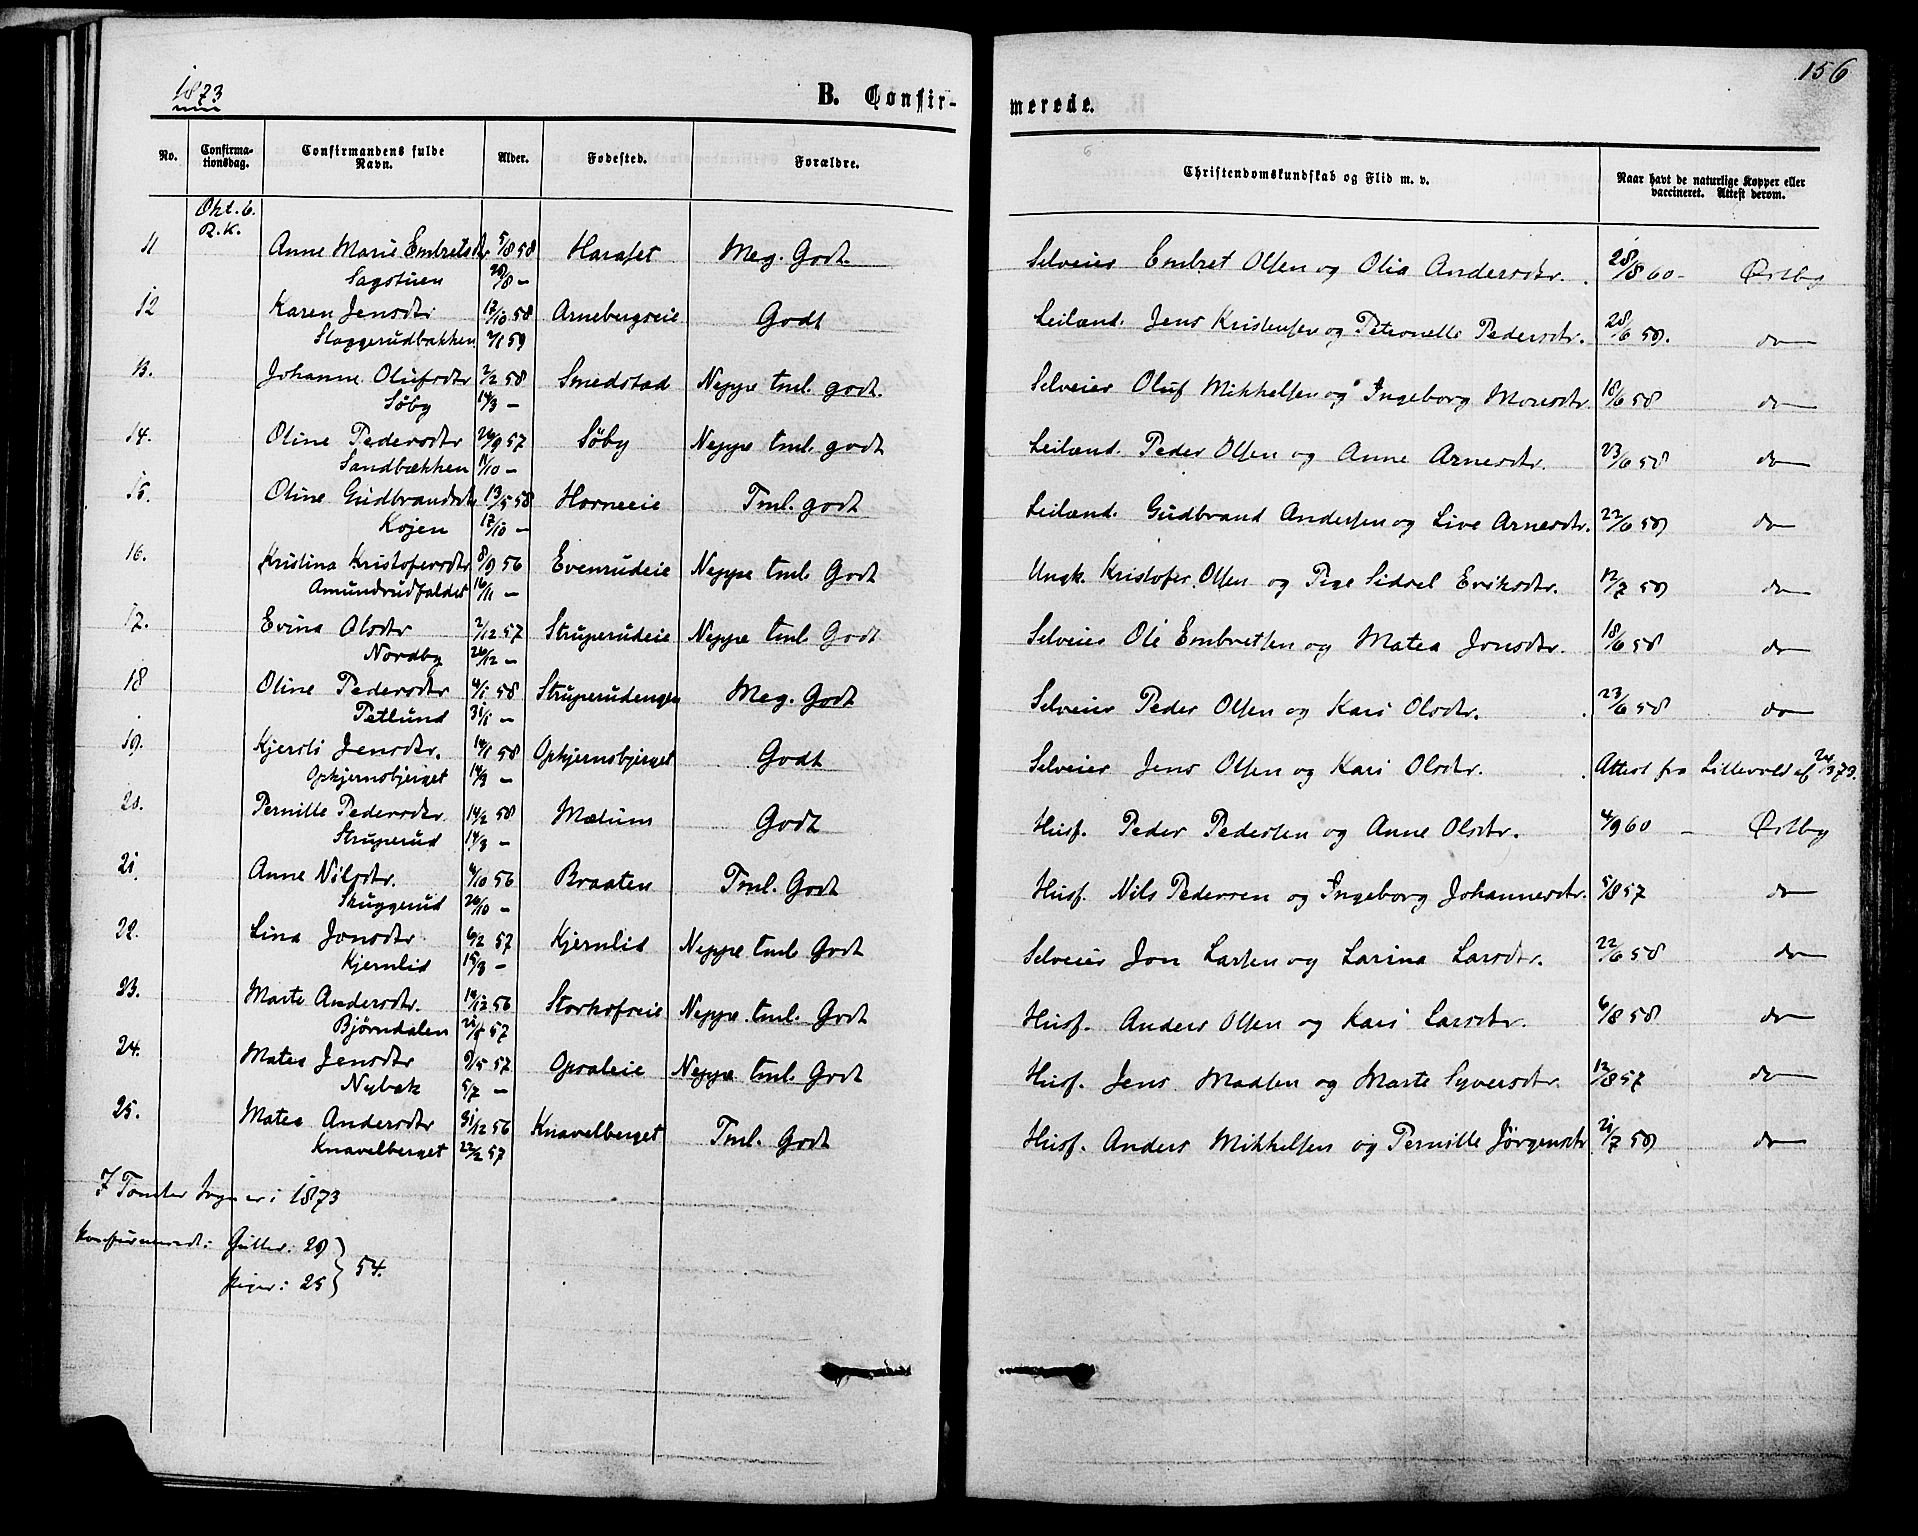 1873
156
B. Confir- merede.
No. Confirma-tionsdag. Confirmandens fulde Navn. Alder. Fødested. Forældre. Christendomskundskab og Flid m. v. Naar havt de naturlige Kopper eller vaccineret. Attest derom.
Okt. 6.
R.K.
11 Anne Marie Embretsdtr 5/8 58 Haraset Meg. Godt. Selveier Embret Olsen og Olia Andersdtr. 28/8 60 - Østby
Sagstuen 29/8 -
12 Karen Jensdtr 17/10 58 Arnebergseie Godt Leilænd. Jens Kristensen og Petronelle Pedersdtr. 28/6 59. do
Slaggerudbakken 2/1 59
13. Johanne Olufsdtr 2/2 58 Smedstad Neppe tml. godt. Selveier Oluf Mikkelsen og Ingeborg Monsdtr. 18/6 58 do
Søby 14/3 -
14. Oline Pedersdtr 26/9 57 Søby Neppe tml. godt Leilænd. Peder Olsen og Anne Arnesdtr. 23/6 58 do
Sandbækken 11/10 -
15. Oline Gudbrandsdtr 13/5 58 Horneeie Tml. godt Leilænd. Gudbrand Andersen og Live Arnesdtr. 22/6 59 do
Kojen 17/10 -
16. Kristina Kristofersdtr 8/9 56 Evenrudeie Neppe tml. Godt Ungk. Kristofer Olsen og Pige Sidsel Eriksdtr. 12/7 59 do
Amundsrudfaldet 16/11 -
17. Evina Olsdtr 2/12 57 Struperudeie Neppe tml. Godt Selveier Ole Embretsen og Matea Jonsdtr. 18/6 58 do
Nordby 26/12 -
18 Oline Pedersdtr 4/1 58 Struperudengen Meg. Godt Selveier Peder Olsen og Kari Olsdtr. 23/6 58 do
Petlund 31/1 -
19. Kjersti Jensdtr. 14/1 58 Opkjernsbjerget Godt Selveier Jens Olsen og Kari Olsdtr. Attest fra Lillevold af 24/3 73.
Opkjernsbjerget 14/3 -
20. Pernille Pedersdtr. 14/2 58 Mælum Godt Husf. Peder Pedersen og Anne Olsdtr. 4/9 60 - Østby
Struperud 14/3 -
21. Anne Nilsdtr. 4/10 56 Braaten Tml. Godt Husf. Nils Pedersen og Ingeborg Johannesdtr. 5/8 57 do
Skuggerud 26/10 -
22. Lina Jonsdtr 6/2 57 Kjernlid Neppe tml. Godt Selveier Jon Larsen og Larina Larsdtr. 22/6 58 do
Kjernlid 15/3 -
23. Marte Andersdtr. 14/12 56 Storhofseie Neppe tml. Godt Husf. Anders Olsen og Kari Larsdtr. 6/8 58 do
Bjørndalen 57
24. Matea Jensdtr 9/5 57 Opsaleie Neppe tml. Godt Husf. Jens Madsen og Marte Syversdtr. 12/8 57 do
Nybæk 5/7 -
25. Matea Andersdtr 31/12 56 Knavelberget Tml. Godt Husf. Anders Mikkelsen og Pernille Jørgensdtr 21/7 59 do
Knavelberget 22/2 57
I Tomter Sogn er i 1873
konfirmeret: Gutter: 29
Piger: 25 } 54.